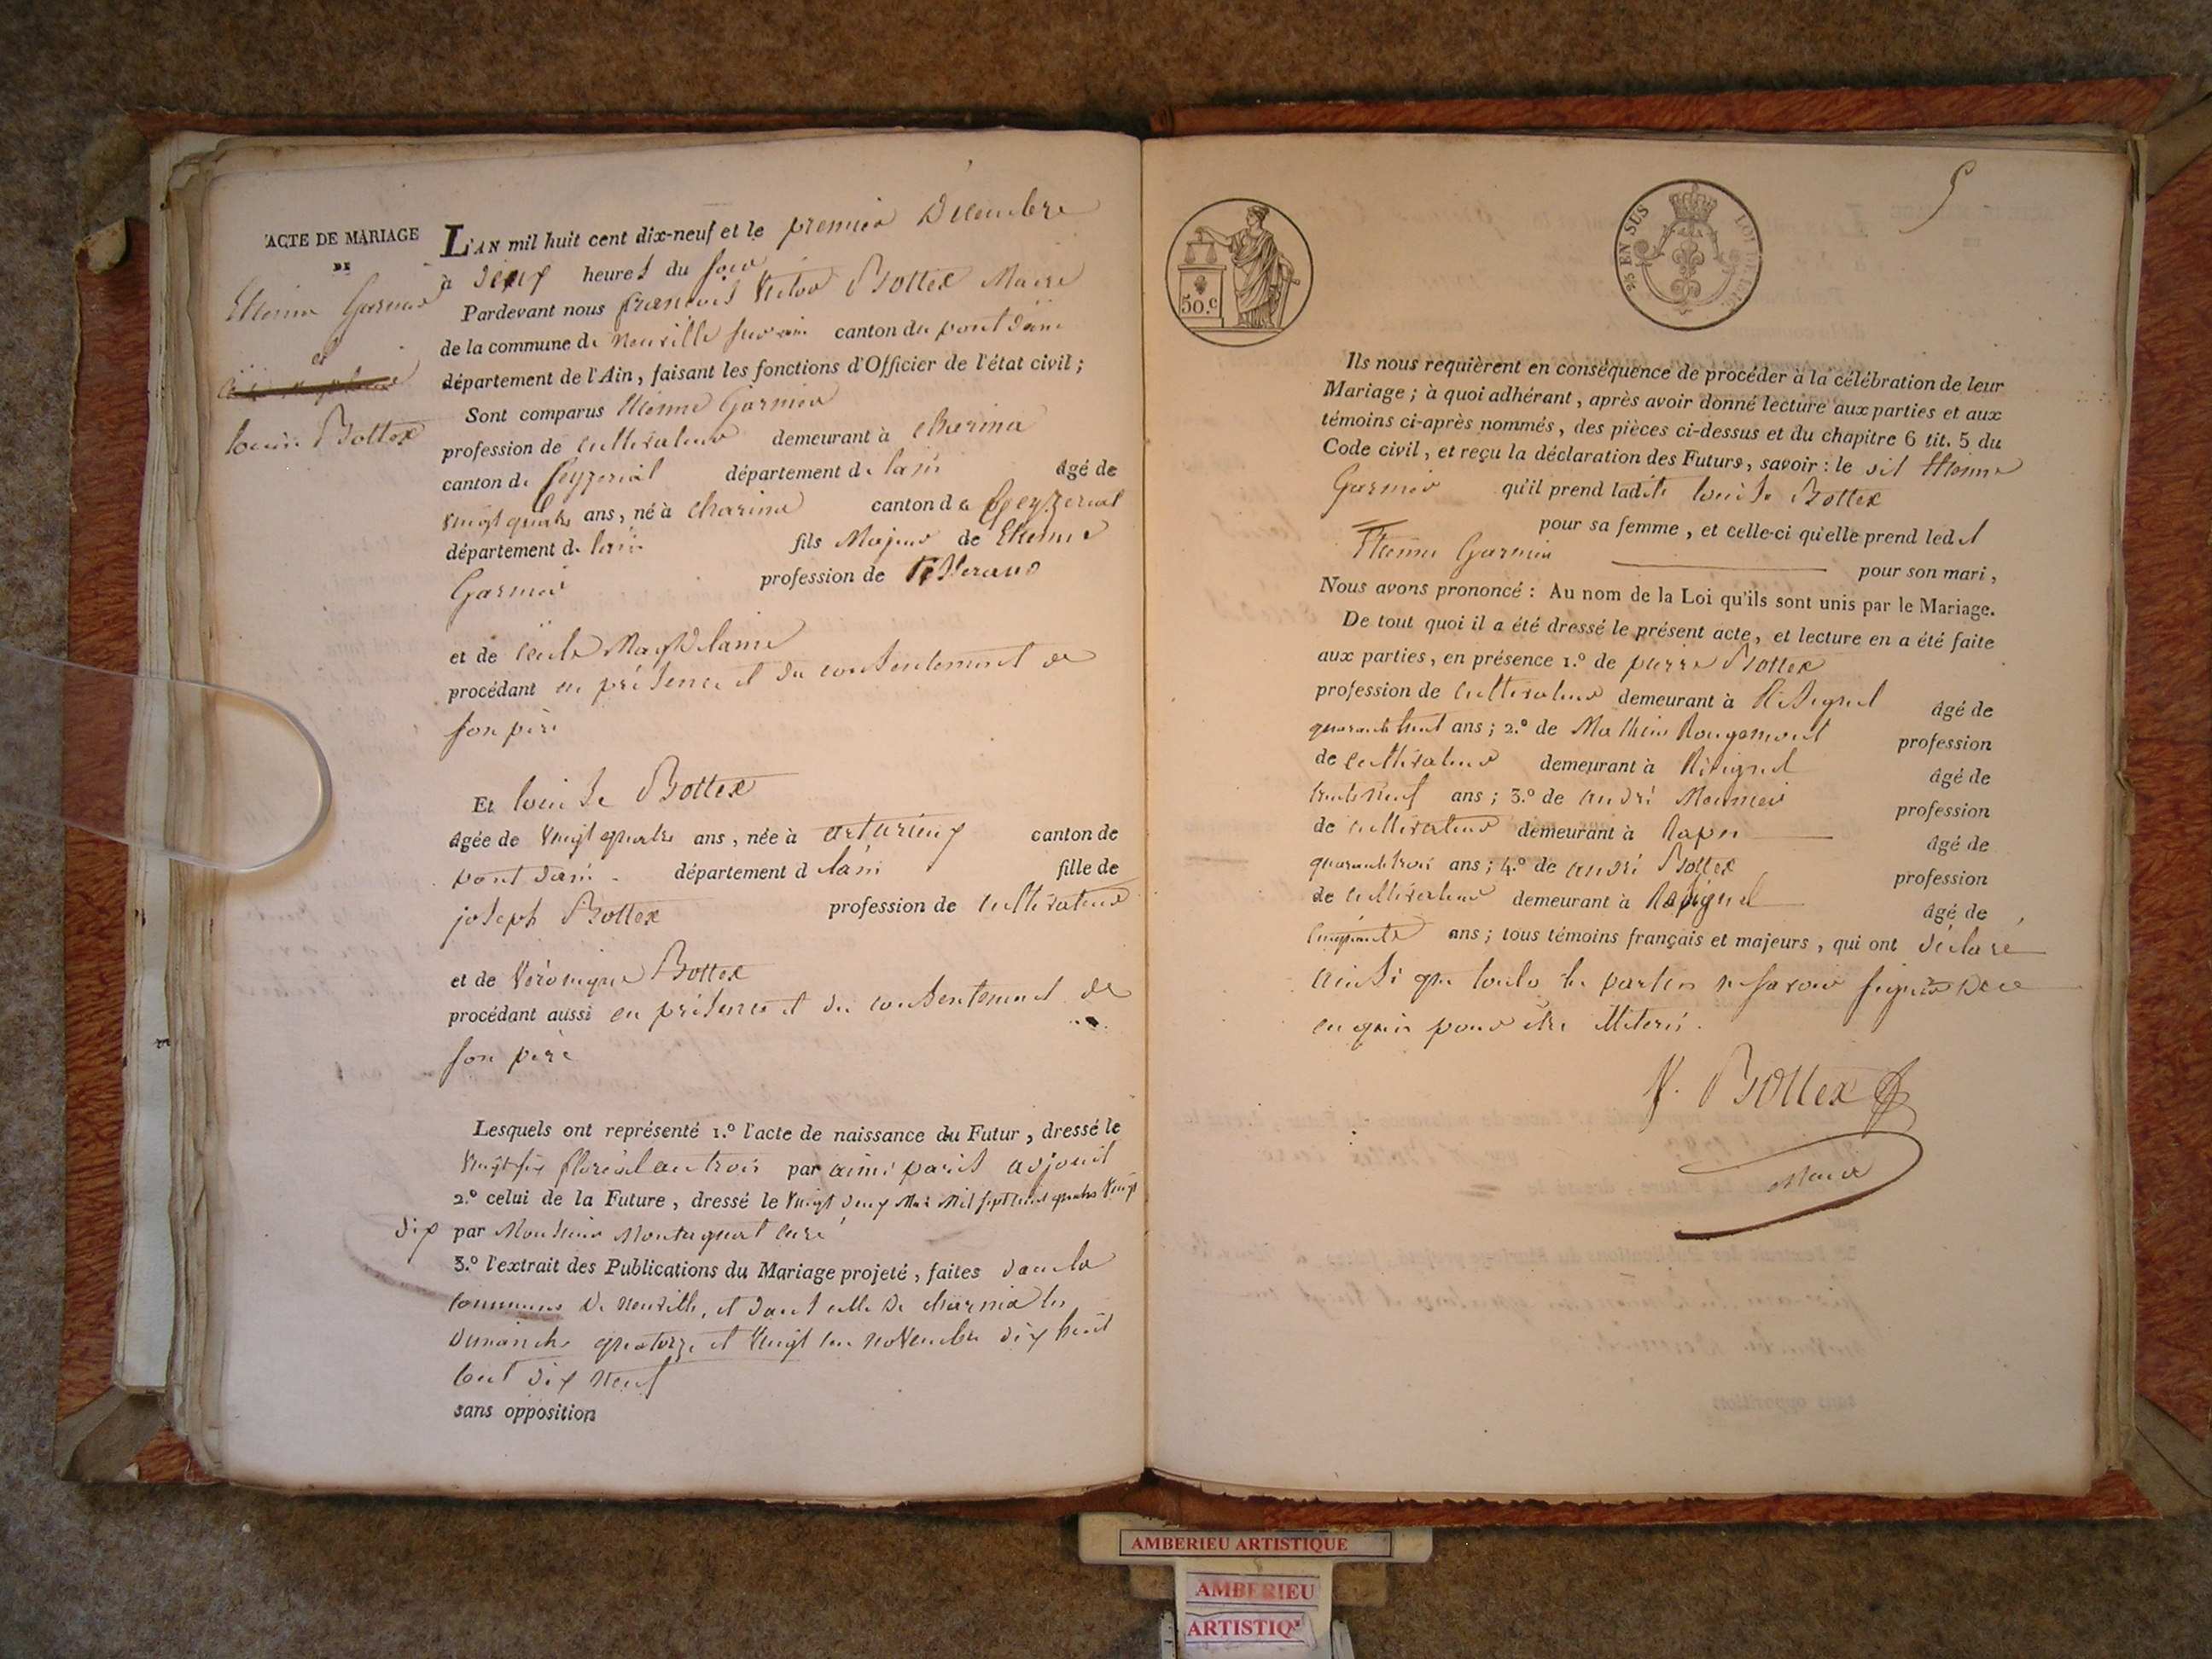 ACTE DE MARIAGE
DE
Etienne Garnier
et
Louise Bottex
L'AN mil huit cent dix-neuf et le premier Décembre
à deux heures du soir
Pardevant nous françois Victor Bottex Maire
de la commune de Neuville sur ain canton de pont dain
département de l'Ain, faisant les fonctions d'Officier de l'état civil;
Sont comparus Etienne Garnier
profession de cultivateur demeurant à
canton de Ceyzeriat département de lain âgé de
vingt quatre ans, né à canton de Ceyzeriat
département de lain fils Majeur de Etienne
Garnier profession de Tisserand
et de Magdelaine
procédant en présence et du consentement de
son père
Et louise Bottex
âgée de vingt quatre ans, née à canton de
pont dain département d lain fille de
joseph Bottex profession de cultivateur
et de Véronique Bottex
procédant aussi en présence et du consentement de
son père
Lesquels ont représenté 1.º l'acte de naissance du Futur, dressé le
vingt six floréal an trois par aimé adjoint
2.º celui de la Future, dressé le vingt deux Mai Mil sept cent quatre vingt
dix par Monsieur curé
3.º l'extrait des Publications du Mariage projeté, faites dans la
commune de Neuville, et dans celle de les
dimanche quatorze et vingt un novembre dix huit
cent dix neuf
sans opposition
50.c
25 EN SUS
5
Ils nous requièrent en conséquence de procéder à la célébration de leur
Mariage; à quoi adhérant, après avoir donné lecture aux parties et aux
témoins ci-après nommés, des pièces ci-dessus et du chapitre 6 tit. 5 du
Code civil, et reçu la déclaration des Futurs, savoir: le dit Etienne
Garnier qu'il prend ladite louise Bottex
pour sa femme, et celle-ci qu'elle prend ledit
Etienne Garnier pour son mari,
Nous avons prononcé: Au nom de la Loi qu'ils sont unis par le Mariage.
De tout quoi il a été dressé le présent acte, et lecture en a été faite
aux parties, en présence 1.º de pierre Bottex
profession de cultivateur demeurant à Résignel âgé de
quarante huit ans; 2.º de Mathieu Rougemont profession
de cultivateur demeurant à âgé de
trente neuf ans; 3.º de andré profession
de cultivateur demeurant à âgé de
quarante trois ans; 4.º de andré Bottex profession
de cultivateur demeurant à âgé de
cinquante ans; tous témoins français et majeurs, qui ont déclaré
ainsi que toutes les parties ne savoir signer de ce
enquis pour être illiterés.
V. Bottex
Maire
AMBERIEU ARTISTIQUE
AMBERIEU
ARTISTIQ